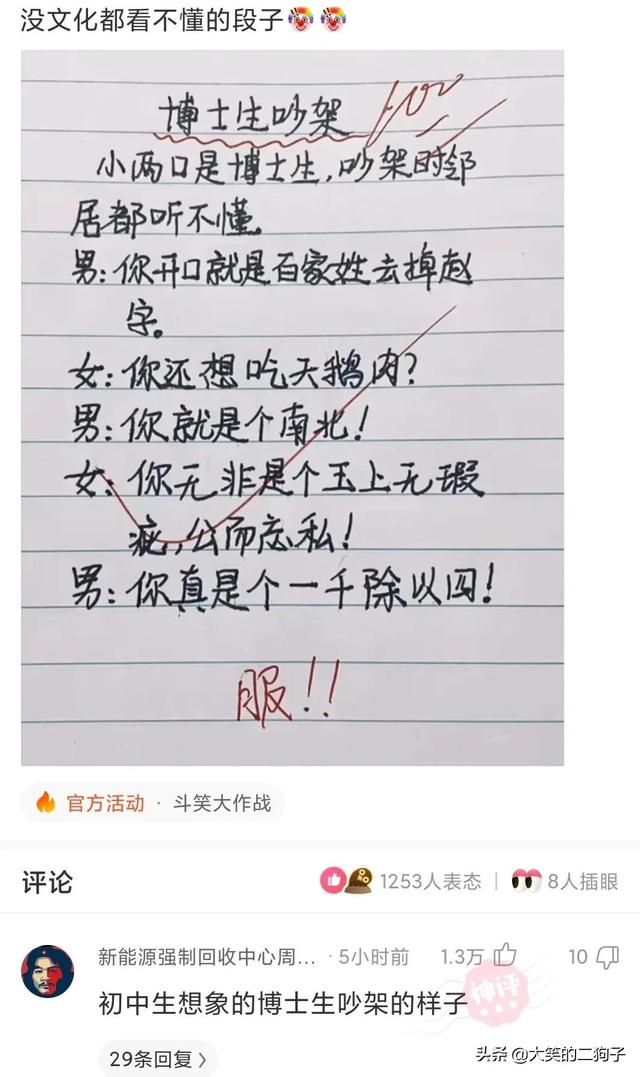 没文化都看不懂的段子🤡🤡
博士生吵架
100
小两口是博士生,吵架时邻
居都听不懂。
男:你开口就是百家姓去掉赵
字。
女:你还想吃天鹅肉?
男:你就是个南北!
女:你无非是个玉上无瑕
疵,公而忘私!
男:你真是个一千除以四!
服!!
官方活动 · 斗笑大作战
评论
1253人表态
8人插眼
新能源强制回收中心周... · 5小时前
1.3万
10
初中生想象的博士生吵架的样子
神评
29条回复 >
头条 @大笑的二狗子